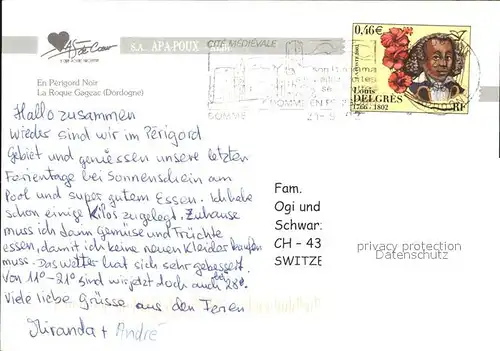 As de Cœur
S.A. APA-POUX
En Périgord Noir
La Roque Gageac (Dordogne)
CITÉ MÉDIÉVALE
DOMME
DOMME EN PÉ
0,46€
Louis
DELGRES
1766 - 1802
RF
Hallo zusammen
Wieder sind wir im Périgord
Gebiet und geniessen unsere letzten
Ferientage bei Sonnenschein am
Pool und super gutem Essen. Ich habe
schon einige Kilos zugelegt. Zuhause
muss ich dann Gemüse und Früchte
essen, damit ich keine neuen Kleider kaufen
muss. Das Wetter hat sich sehr gebessert.
Von 11°-21° sind wir jetzt doch auch bei 28°.
Viele liebe Grüsse aus den Ferien
Miranda + André
Fam.
Ogi und
Schwar
CH - 43
SWITZE
privacy protection
Datenschutz